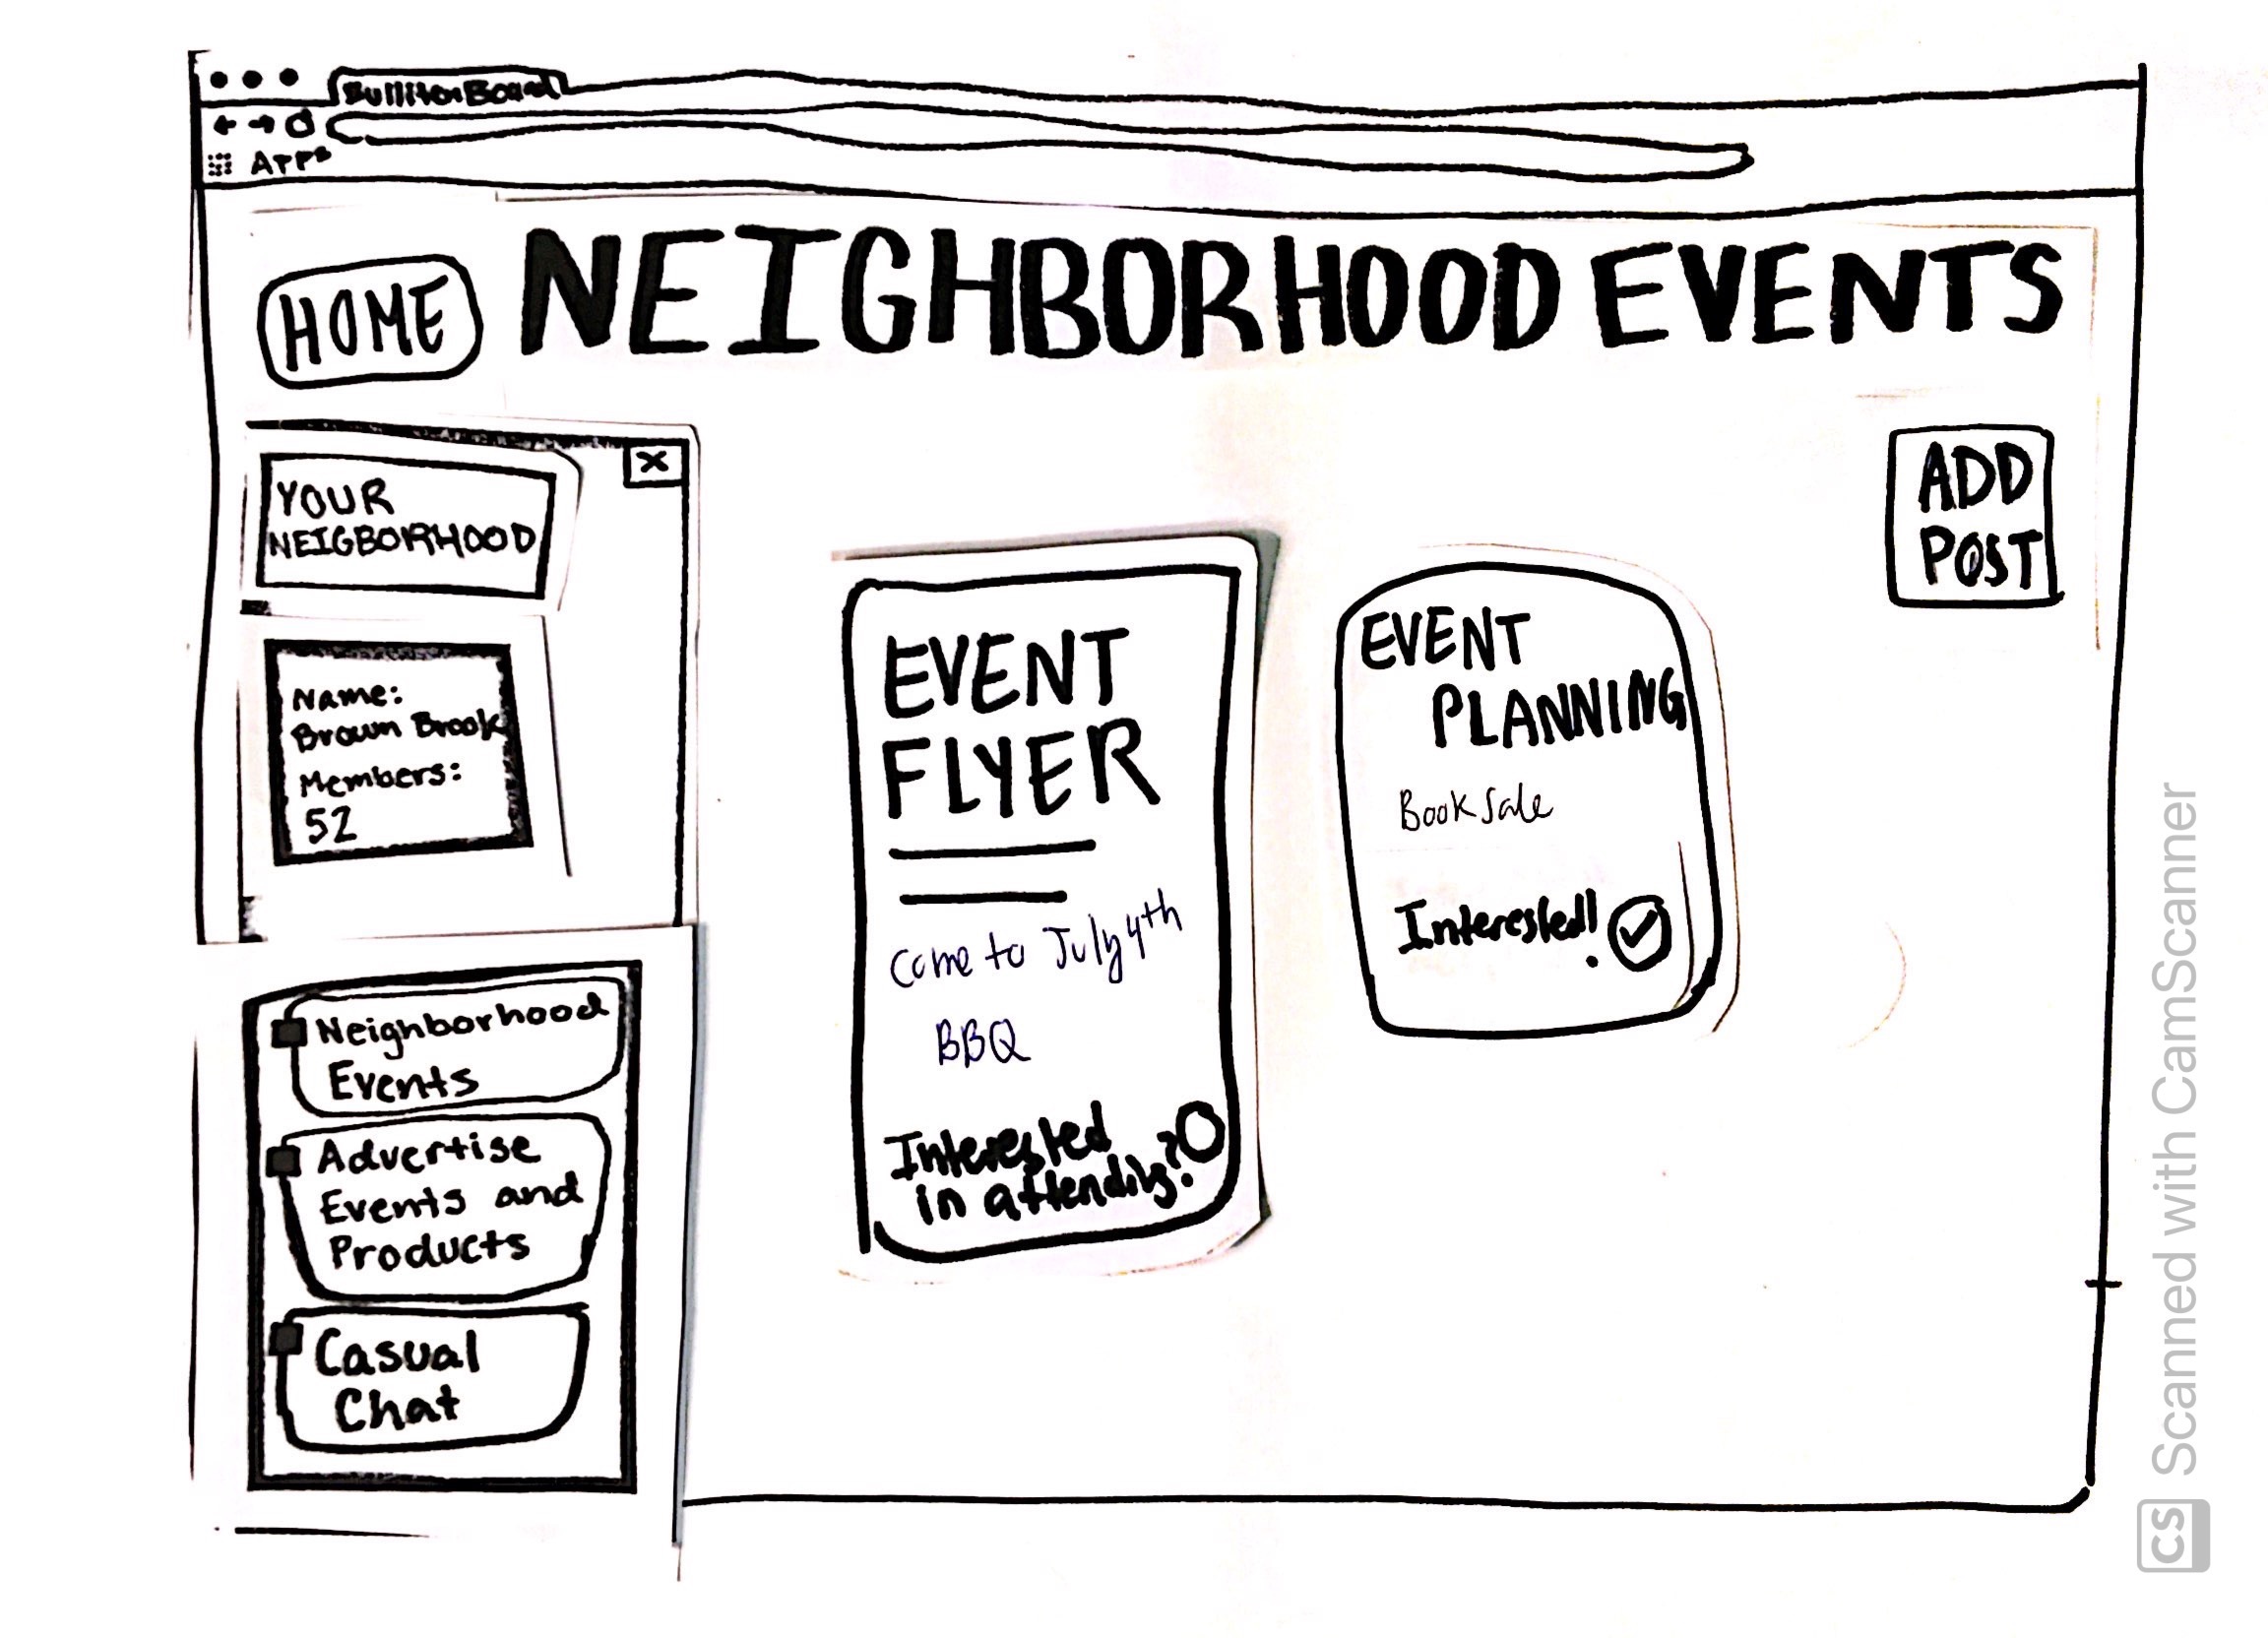 BullitenBoard
APPS
HOME
NEIGHBORHOOD EVENTS
X
YOUR
NEIGBORHOOD
Name:
Brown Brook
Members:
52
Neighborhood
Events
Advertise
Events and
Products
Casual
Chat
EVENT
FLYER
Come to July 4th
BBQ
Interested
in attending?
EVENT
PLANNING
Book Sale
Interested!
ADD
POST
CS Scanned with CamScanner